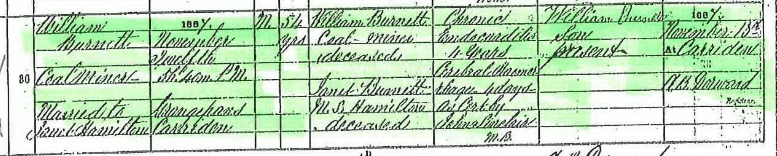 William
Burnett
80
Coal Miner
Married to
Janet Hamilton
1887.
November
Twelfth
5h. 45m P.M.
Grangepans
Carriden
M
54
yrs
William Burnett
Coal-miner
deceased
Janet Burnett
M.S. Hamilton
deceased
Chronic
Endocarditis
4 Years
Cerebral
4 days
As Cert by
John Sinclair
M.B.
William Burnett
Son
present
1887.
November 13th
At Carriden